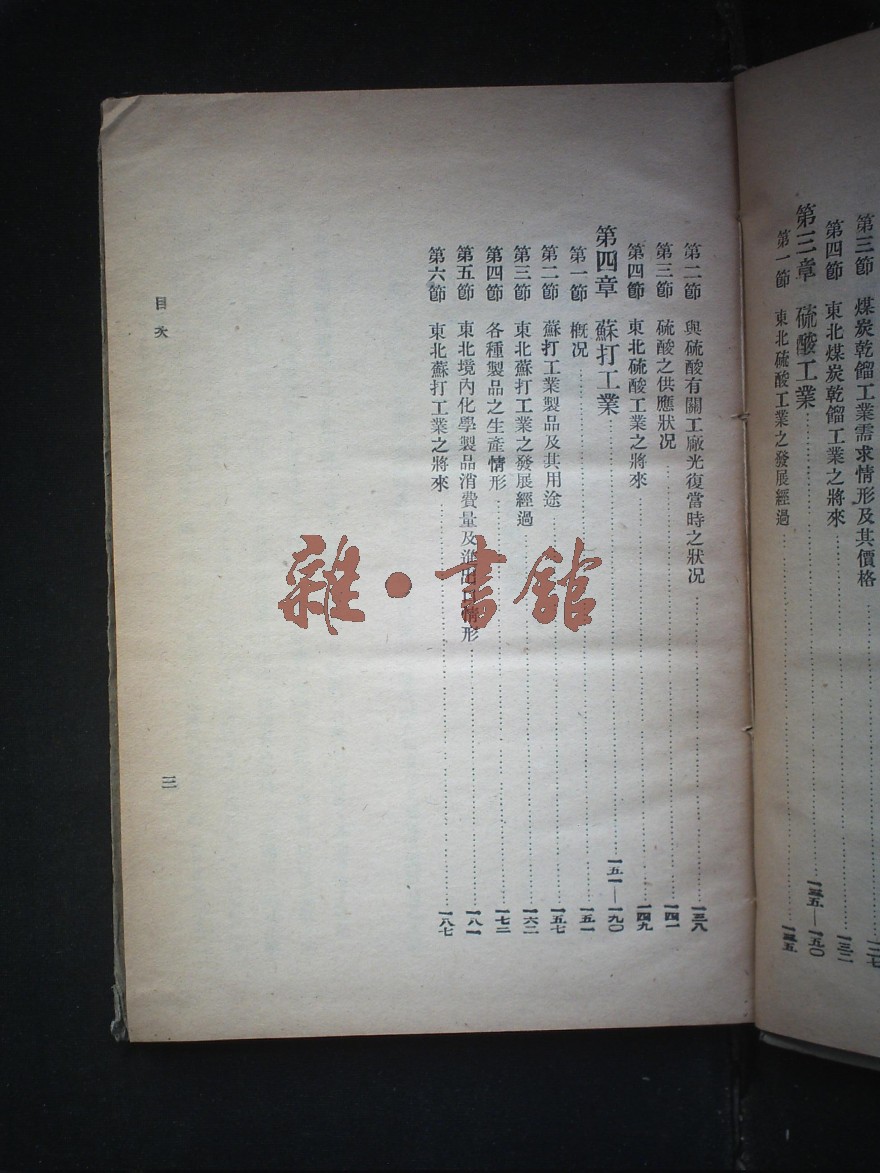 第三節 煤炭乾餾工業需求情形及其價格……一二七
第四節 東北煤炭乾餾工業之將來……一三二
第三章 硫酸工業……一三五—一五〇
第一節 東北硫酸工業之發展經過……一三五
第二節 與硫酸有關工廠光復當時之狀况……一三八
第三節 硫酸之供應狀况……一四一
第四節 東北硫酸工業之將來……一四九
第四章 蘇打工業……一五一—一九〇
第一節 槪况……一五一
第二節 蘇打工業製品及其用途……一五七
第三節 東北蘇打工業之發展經過……一六二
第四節 各種製品之生產情形……一七二
第五節 東北境內化學製品消費量及 情形……一八一
第六節 東北蘇打工業之將來……一八七
目次
三
雜·書館